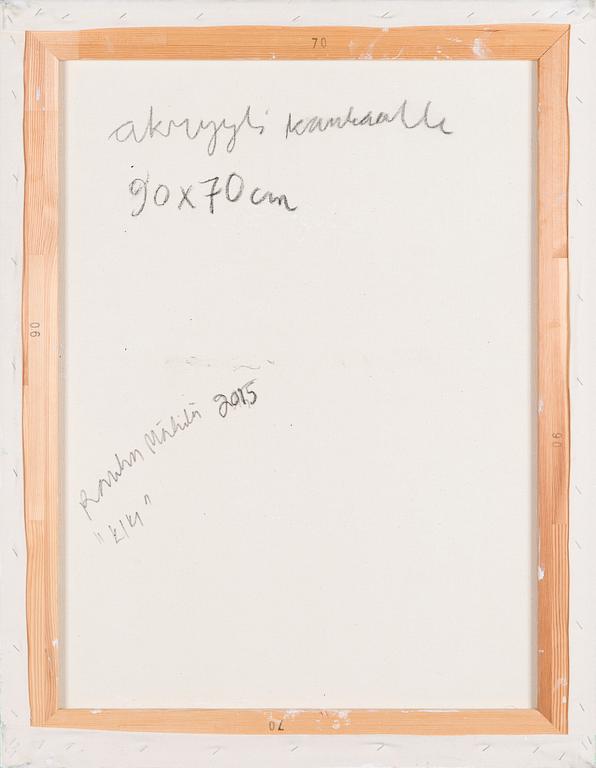 70
akryyli kankaalle
90x70cm
90
2015
Rauha Mäkilä
"Kiki"
90
70